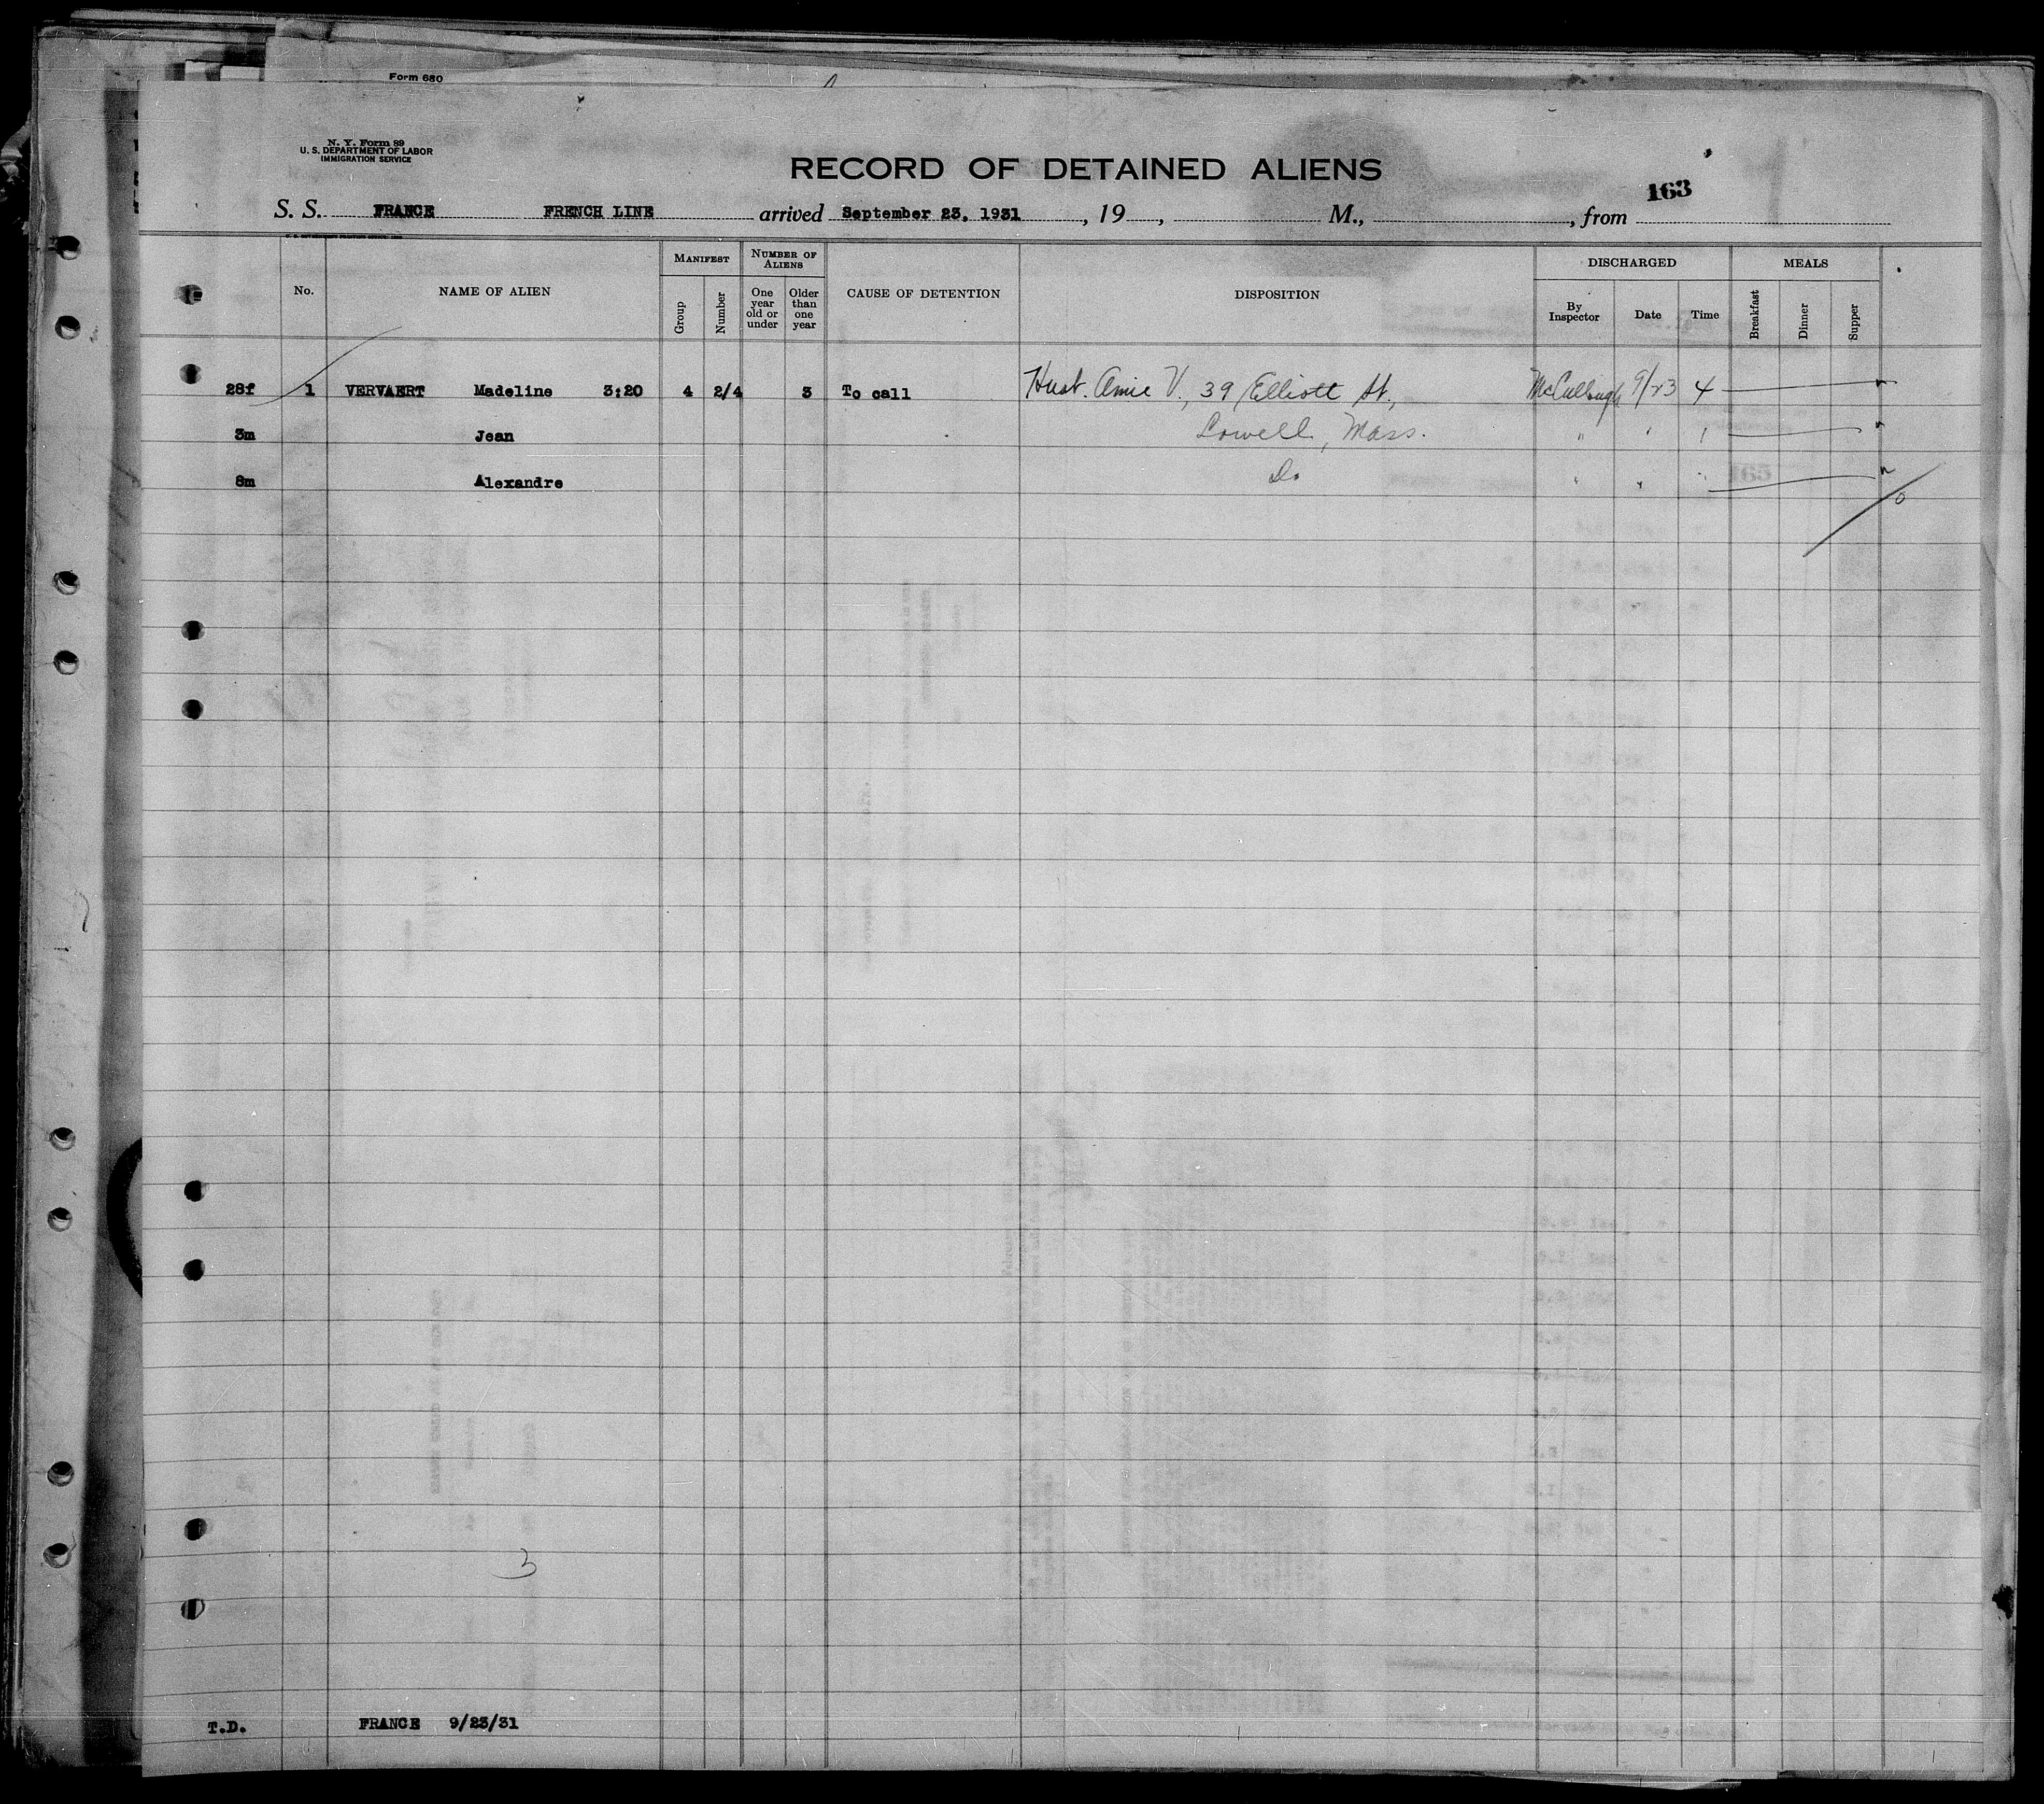 Form 680
N. Y. Form 89
U. S. DEPARTMENT OF LABOR
IMMIGRATION SERVICE
RECORD OF DETAINED ALIENS
163
S. S. FRANCE FRENCH LINE arrived September 23, 1931, 19 , M., , from
No. NAME OF ALIEN MANIFEST Group Number NUMBER OF ALIENS One year old or under Older than one year CAUSE OF DETENTION DISPOSITION DISCHARGED By Inspector Date Time MEALS Breakfast Dinner Supper
28f 1 VERVAERT Madeline 3:20 4 2/4 3 To call Husb. Amie V., 39 Elliott St., McCullough 9/23 4
3m Jean Lowell, Mass. " " "
8m Alexandre Do " " "
0
165
3
T.D. FRANCE 9/23/31